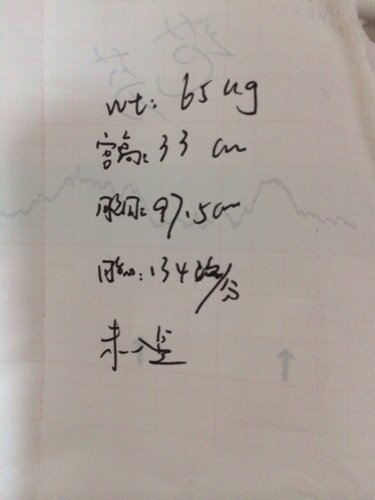 wt: 65 kg
宫高: 33 cm
腹围: 97.5cm
胎心: 134次/分
未入盆